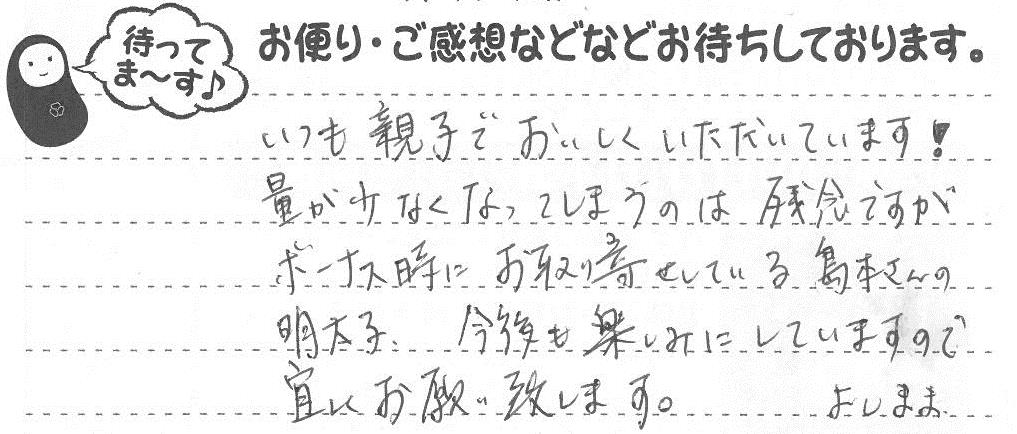 待って
ま〜す♪
お便り・ご感想などなどお待ちしております。
いつも親子でおいしくいただいています!
量が少なくなってしまうのは残念ですが
ボーナス時にお取り寄せしている島本さんの
明太子、今後も楽しみにしていますので
宜しくお願い致します。 よしまま